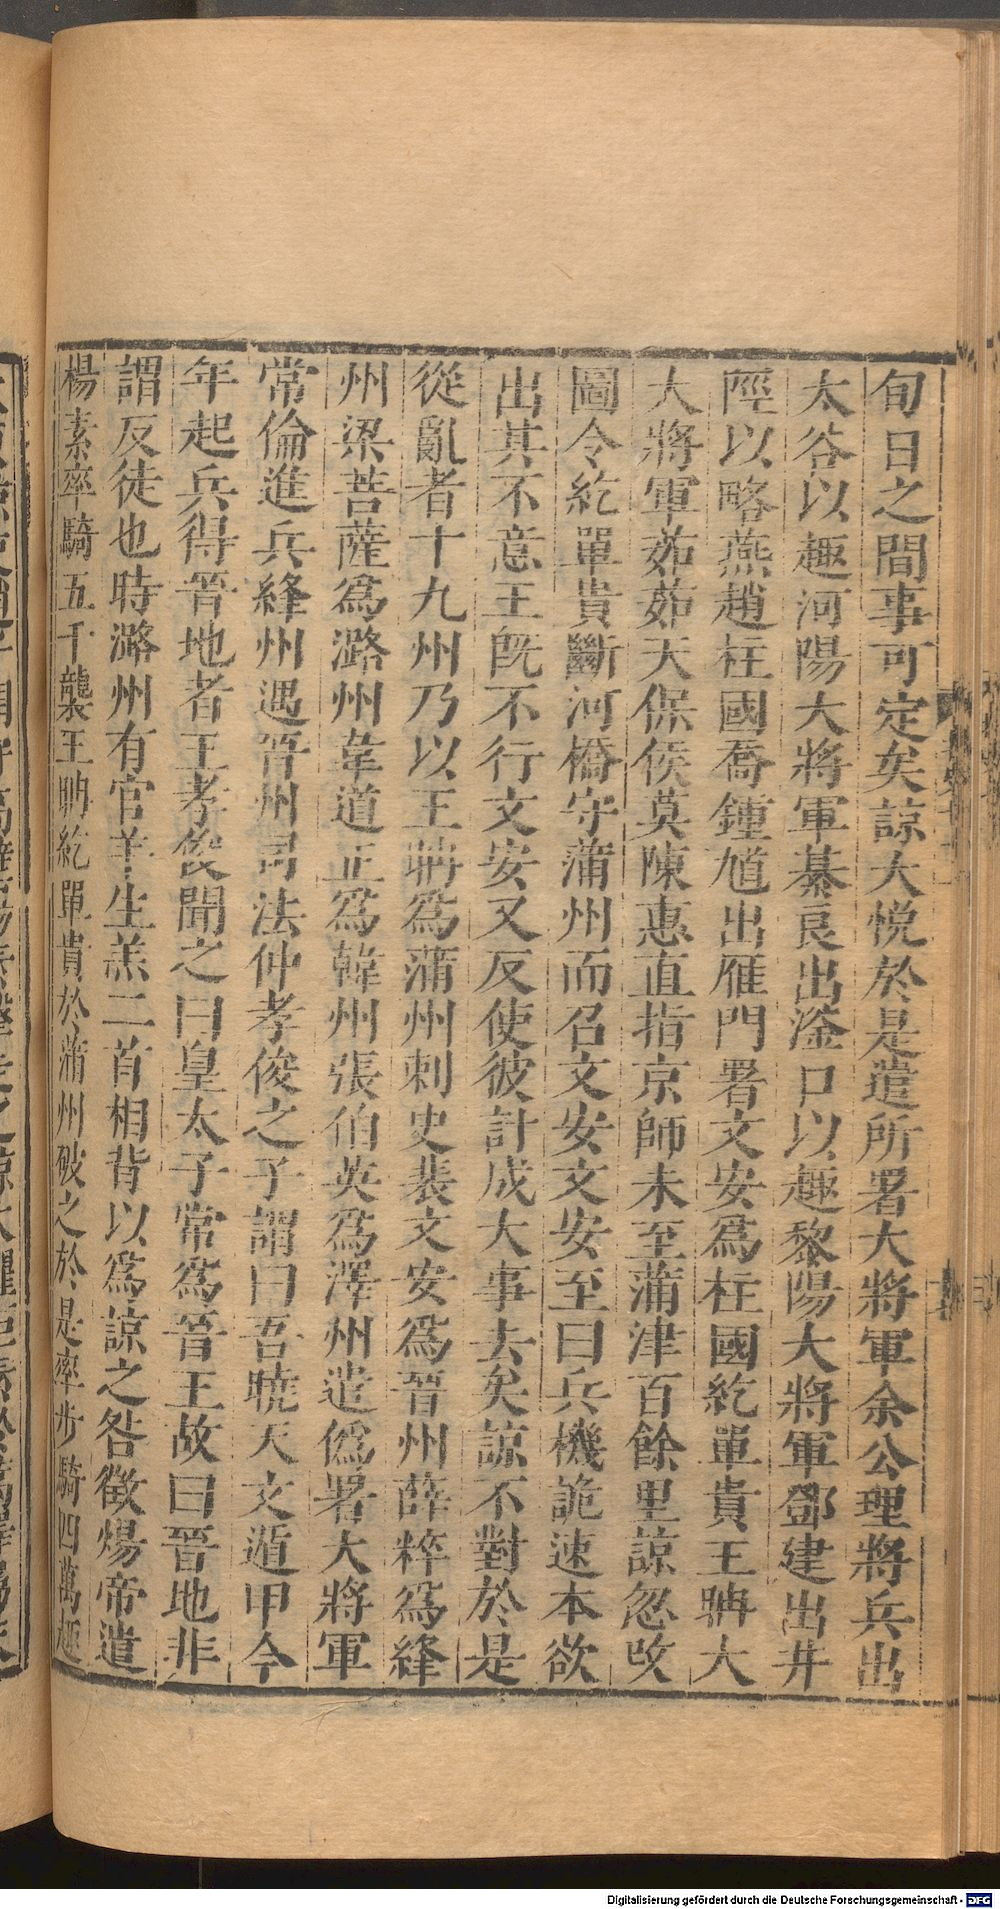 旬日之間事可定矣諒大悅於是遣所署大將軍余公理將兵出
太谷以趣河陽大將軍綦良出滏口以趣黎陽大將軍鄧建出井
陘以略燕趙柱國喬鍾馗出雁門署文安爲柱國紇單貴王聃大
大將軍茹茹天保侯莫陳惠直指京師未至蒲津百餘里諒忽改
圖令紇單貴斷河橋守蒲州而召文安文安至曰兵機詭速本欲
出其不意王旣不行文安又反使彼計成大事去矣諒不對於是
從亂者十九州乃以王聃爲蒲州刺史裴文安爲晉州薛粹爲絳
州梁菩薩爲潞州韋道正爲韓州張伯英爲澤州遣僞署大將軍
常倫進兵絳州遇晉州司法仲孝俊之子謂曰吾曉天文遁甲今
年起兵得晉地者王孝俊聞之曰皇太子常爲晉王故曰晉地非
謂反徒也時潞州有官羊生羔二首相背以爲諒之咎徵煬帝遣
楊素率騎五千襲王聃紇單貴於蒲州破之於是率步騎四萬趣
Digitalisierung gefördert durch die Deutsche Forschungsgemeinschaft - DFG